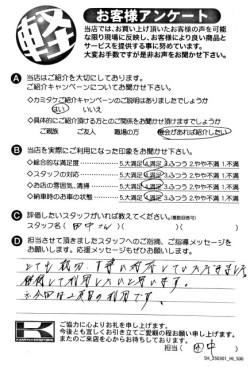 軽
お客様アンケート
当店では、お買い上げ頂いたお客様の声を可能
な限り現場に反映し、お客様により良い商品と
サービスを提供する事に努めています。
大変お手数ですが是非お声をお聞かせ下さい。
A 当店はご紹介を大切にしております。
ご紹介キャンペーンについてお聞かせ下さい。
◇カミタケご紹介キャンペーンのご説明はありましたでしょうか
はい いいえ
◇具体的にご紹介頂ける方とのご関係をお聞かせ頂けますでしょうか
ご親族 ご友人 職場の方 機会があれば紹介したい
B 当店を実際にご利用になった印象をお聞かせ下さい。
◇総合的な満足度 5.大満足 4.満足 3.ふつう 2.やや不満 1.不満
◇スタッフの対応 5.大満足 4.満足 3.ふつう 2.やや不満 1.不満
◇お店の雰囲気、清掃 5.大満足 4.満足 3.ふつう 2.やや不満 1.不満
◇納車時のお車の状態 5.大満足 4.満足 3.ふつう 2.やや不満 1.不満
C 評価したいスタッフがいれば教えてください。(複数回答可)
スタッフ名( 田中さん )( )( )
D 担当させて頂きましたスタッフへのご指摘、ご指導メッセージを
お願いします。応援メッセージもぜひお願いします。
とても親切、丁寧に対応していただきました
ご協力に心よりお礼を申し上げます。
今後とも宜しくお引き立てご愛顧の程お願い申し上げます。
またのご来店を心からお待ちしております。
担当( 田中 )